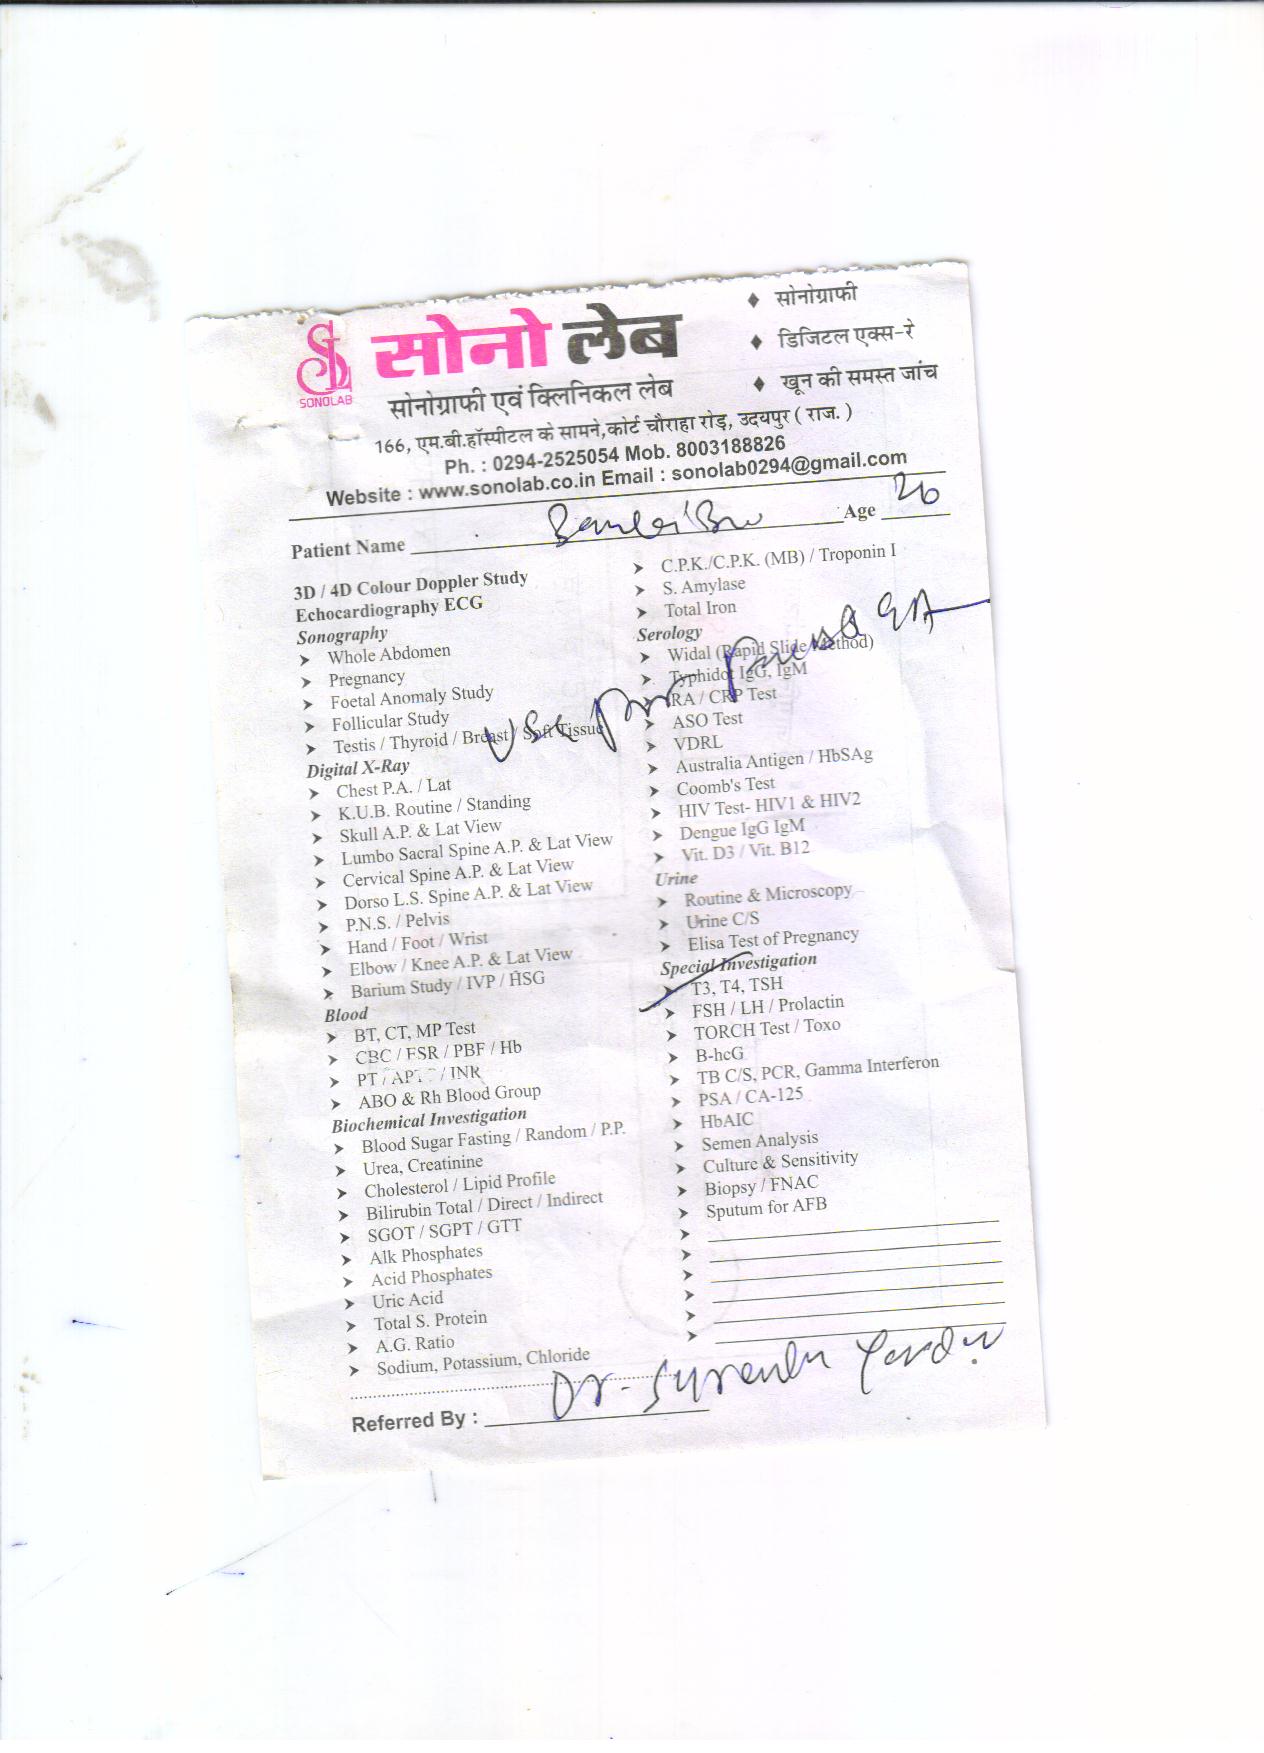 सोनो लेब
SONOLAB
◆ सोनोग्राफी
◆ डिजिटल एक्स-रे
◆ खून की समस्त जांच
सोनोग्राफी एवं क्लिनिकल लेब
166, एम.बी.हॉस्पीटल के सामने,कोर्ट चौराहा रोड़, उदयपुर ( राज. )
Ph. : 0294-2525054 Mob. 8003188826
Website : www.sonolab.co.in Email : sonolab0294@gmail.com
Patient Name Age 26
3D / 4D Colour Doppler Study
Echocardiography ECG
Sonography
➤ Whole Abdomen
➤ Pregnancy
➤ Foetal Anomaly Study
➤ Follicular Study
➤ Testis / Thyroid / Breast / Soft Tissue
Digital X-Ray
➤ Chest P.A. / Lat
➤ K.U.B. Routine / Standing
➤ Skull A.P. & Lat View
➤ Lumbo Sacral Spine A.P. & Lat View
➤ Cervical Spine A.P. & Lat View
➤ Dorso L.S. Spine A.P. & Lat View
➤ P.N.S. / Pelvis
➤ Hand / Foot / Wrist
➤ Elbow / Knee A.P. & Lat View
➤ Barium Study / IVP / HSG
Blood
➤ BT, CT, MP Test
➤ CBC / ESR / PBF / Hb
➤ PT / / INR
➤ ABO & Rh Blood Group
Biochemical Investigation
➤ Blood Sugar Fasting / Random / P.P.
➤ Urea, Creatinine
➤ Cholesterol / Lipid Profile
➤ Bilirubin Total / Direct / Indirect
➤ SGOT / SGPT / GTT
➤ Alk Phosphates
➤ Acid Phosphates
➤ Uric Acid
➤ Total S. Protein
➤ A.G. Ratio
➤ Sodium, Potassium, Chloride
➤ C.P.K./C.P.K. (MB) / Troponin I
➤ S. Amylase
➤ Total Iron
Serology
➤ Widal (Rapid Slide Method)
➤ Typhidot IgG, IgM
➤ RA / CRP Test
➤ ASO Test
➤ VDRL
➤ Australia Antigen / HbSAg
➤ Coomb's Test
➤ HIV Test- HIV1 & HIV2
➤ Dengue IgG IgM
➤ Vit. D3 / Vit. B12
Urine
➤ Routine & Microscopy
➤ Urine C/S
➤ Elisa Test of Pregnancy
Special Investigation
➤ T3, T4, TSH
➤ FSH / LH / Prolactin
➤ TORCH Test / Toxo
➤ B-hcG
➤ TB C/S, PCR, Gamma Interferon
➤ PSA / CA-125
➤ HbAIC
➤ Semen Analysis
➤ Culture & Sensitivity
➤ Biopsy / FNAC
➤ Sputum for AFB
Referred By : Dr. Surendra